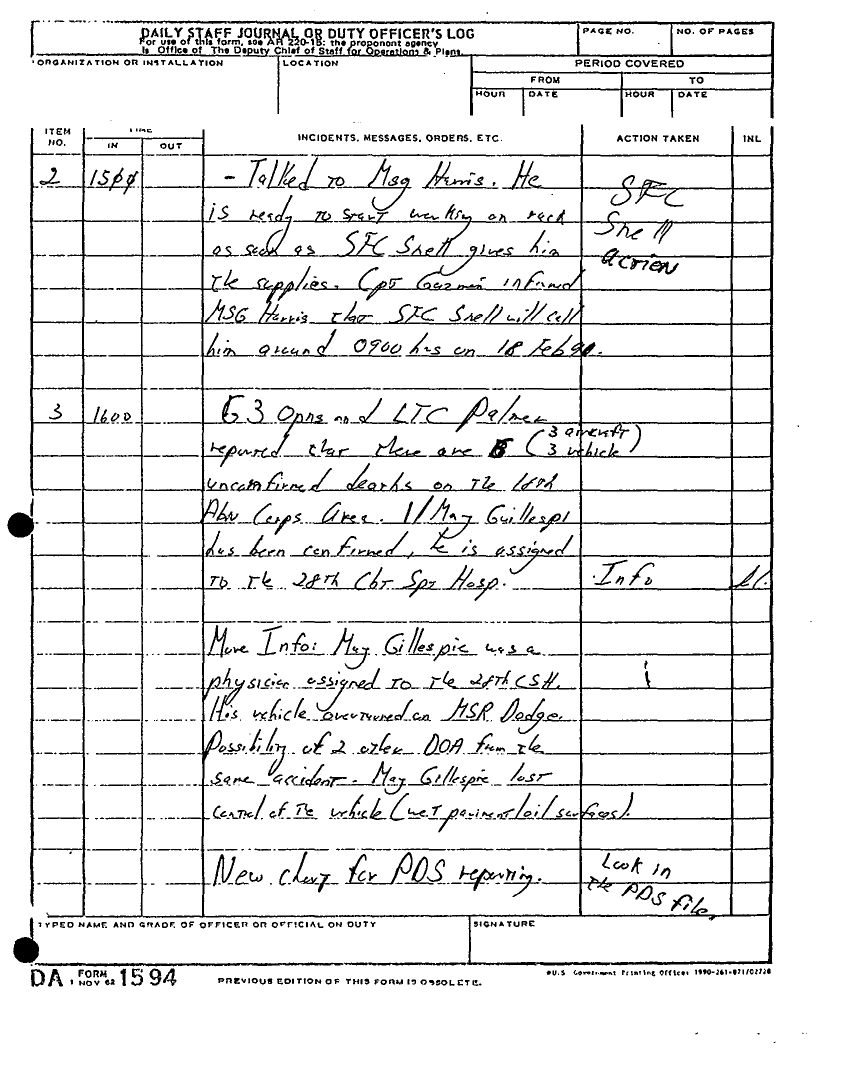 DAILY STAFF JOURNAL OR DUTY OFFICER'S LOG
For use of this form, see AR 220-15; the proponent agency
is Office of The Deputy Chief of Staff for Operations & Plans.
PAGE NO.
NO. OF PAGES
ORGANIZATION OR INSTALLATION
LOCATION
PERIOD COVERED
FROM
TO
HOUR
DATE
HOUR
DATE
ITEM NO.
TIME
IN
OUT
INCIDENTS, MESSAGES, ORDERS, ETC.
ACTION TAKEN
INL
2 1500 - Talked to Msg Harris. He
is ready to start working on rack
as soon as SFC Snell gives him
the supplies. Cpt Guzman informed
MSG Harris that SFC Snell will call
him around 0900 hrs on 18 Feb 90.
SFC
Snell
action
3 1600 G3 Opns and LTC Palmer
reported that there are 6 (3 aircraft)
(3 vehicle)
unconfirmed deaths on the 18th
Abn Corps Area. 1/Maj Guillespi
has been confirmed, he is assigned
to the 28th Cbt Spt Hosp. Info
More Info: Maj Gillespie was a
physician assigned to the 28th CSH.
His vehicle overturned on MSR Dodge.
Possibility of 2 other DOA from the
same accident. Maj Gillespie lost
control of the vehicle (wet paviment/oil surfaces).
New chart for PDS reporting.
Look in
the PDS file.
TYPED NAME AND GRADE OF OFFICER OR OFFICIAL ON DUTY
SIGNATURE
DA FORM 1 NOV 62 1594
PREVIOUS EDITION OF THIS FORM IS OBSOLETE.
*U.S. Government Printing Office: 1990-261-871/02728